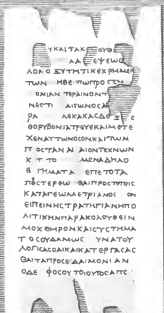 ΥΚΑΙΤΑΚ ΟΥΘ
ΛΑ ΕΨΕΩ
ΤΩΝ ΗΘΕ ΠΩΠΡΟ
ΟΝΙΑΝ ΠΑΡΑΙΝΟΝΤ
ΝΕCΤΙ ΔΙΤΩΝΟCΑ
ΡΑ ΛΕΚΑΚΑCΔΟ
ΘΟΡΥΒΟΝΙΑΤΡΕΥΕΚΑΙΜΟΤΕ
ΧΕΝΑΥΤΩΝΟCΟΝΚΑΙΤΩΝ
Π ΟCΤΑΝ ΑΙΟΝΤΕΧΝΩΝ
Κ Τ ΤΟ ΜΕΝΔΗΛΟ
Β ΓΗΜΑΤΑ ΕΠΕΤΟΤΑ
ΠΟCΤΕΡΘΩ ΘΑΙΠΡΟCΤΙΠΟC
ΚΑΤΑΓΕΩΜΕΤΡΙΑΝΟΙ ΟΝ
ΕΙΠΕΙΝΗCΤΡΑΤΗΓΙΑΝΗΠΟ
ΛΙΤΙΚΗΝΠΑΡΑΚΟΛΟΥΘΕΙΝ
ΜΟΧΘΗΡΟΝΚΑΙCΥCΤΗΜΑ
Τ ΟCΟΥΔΑΜΩC ΥΝΑΤΟΥ
ΛΟΓΙCΑCΘΑΙΚΑΙΚΑΤΕΡΓΑCΑC
ΘΑΙΤΑΠΡΟCΕΥΔΑΙΜΟΝΙΑΝ
ΟΔΕ ΦΟCΟΥΤΟΙΟΥΤΟCΑΠΕ